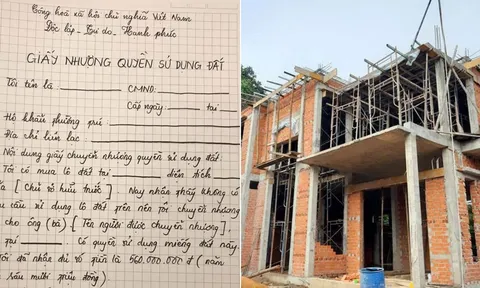 Cộng hoà xã hội chủ nghĩa Việt Nam
Độc lập - Tự do - Hạnh phúc
GIẤY NHƯỜNG QUYỀN SỬ DỤNG ĐẤT
Tôi tên là: CMND:
Cấp ngày: tại
Hộ khẩu thường trú:
Địa chỉ liên lạc:
Nội dung giấy chuyển nhượng quyền sử dụng đất.
Tôi có mua lô đất tại diện tích
của [Chủ sở hữu trước]. Nay nhận thấy không có
cầu sử dụng lô đất trên nên tôi chuyển nhượng
cho ông (bà) [Tên người được chuyển nhượng].
tại có quyền sử dụng miếng đất này
Tôi đã nhận đủ số tiền là 560.000.000 đ (năm
sáu mươi triệu đồng).